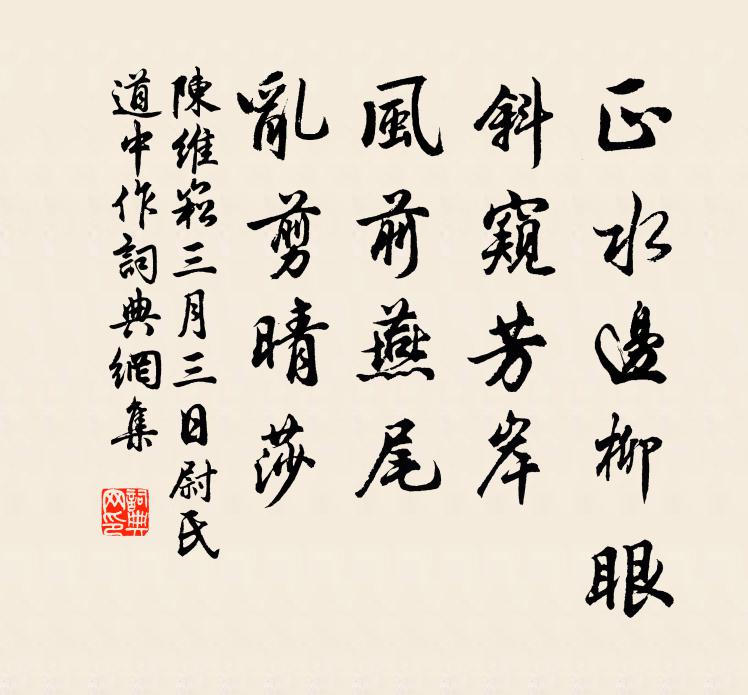 正水邊柳眼
斜窺芳岸
風前燕尾
亂剪晴莎
陳維崧三月三日尉氏
道中作詞典網集
詞典
网印